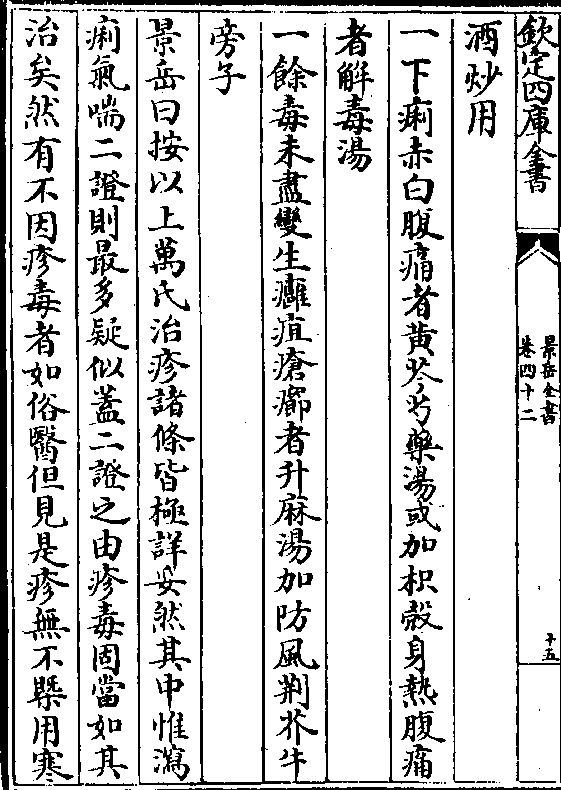 欽定四庫全書
景岳全書
卷四十二
十五
酒炒用
一下痢赤白腹痛者黄芩芍藥湯或加枳殻身熱腹痛
者解毒湯
一餘毒未盡變生癰疽瘡癤者升麻湯加防風荆芥牛
旁子
景岳曰按以上萬氏治疹諸條皆極詳妥然其中惟瀉
痢氣喘二證則最多疑似葢二證之由疹毒固當如其
治矣然有不因疹毒者如俗醫但見是疹無不槩用寒